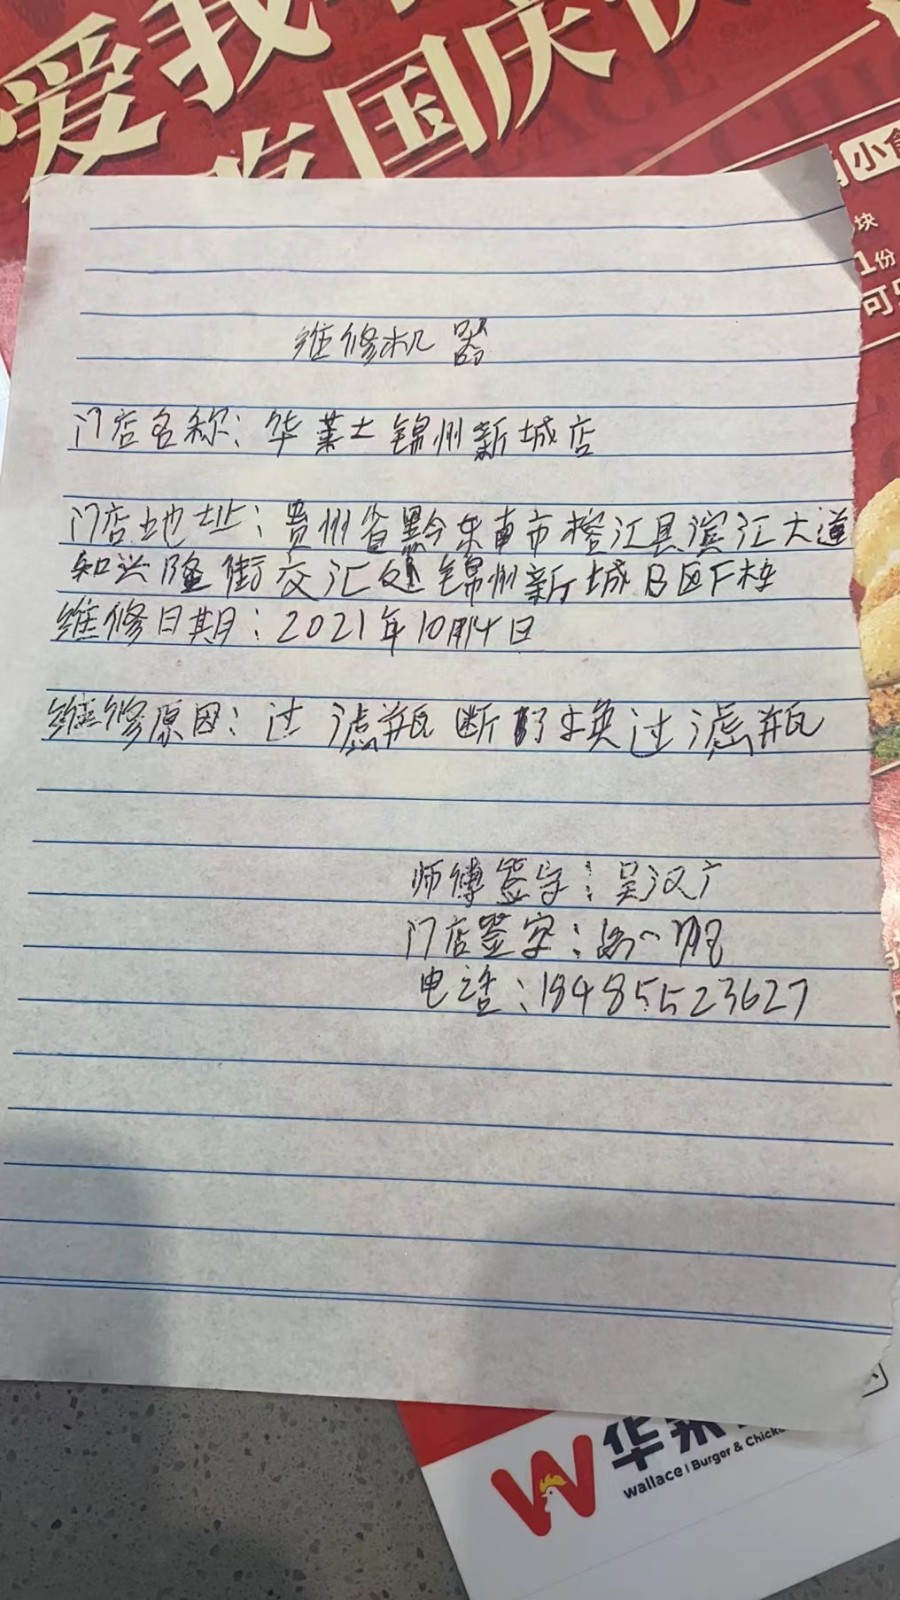 爱我
国庆
小食
块
1份
可
维修机器
门店名称：华莱士锦州新城店
门店地址：贵州省黔东南市榕江县滨江大道
和兴隆街交汇处锦州新城B区F栋
维修日期：2021年10月14日
维修原因：过滤瓶断了换过滤瓶
师傅签字：吴汉广
门店签字：
电话：18485523627
W华莱
Wallace | Burger & Chicke